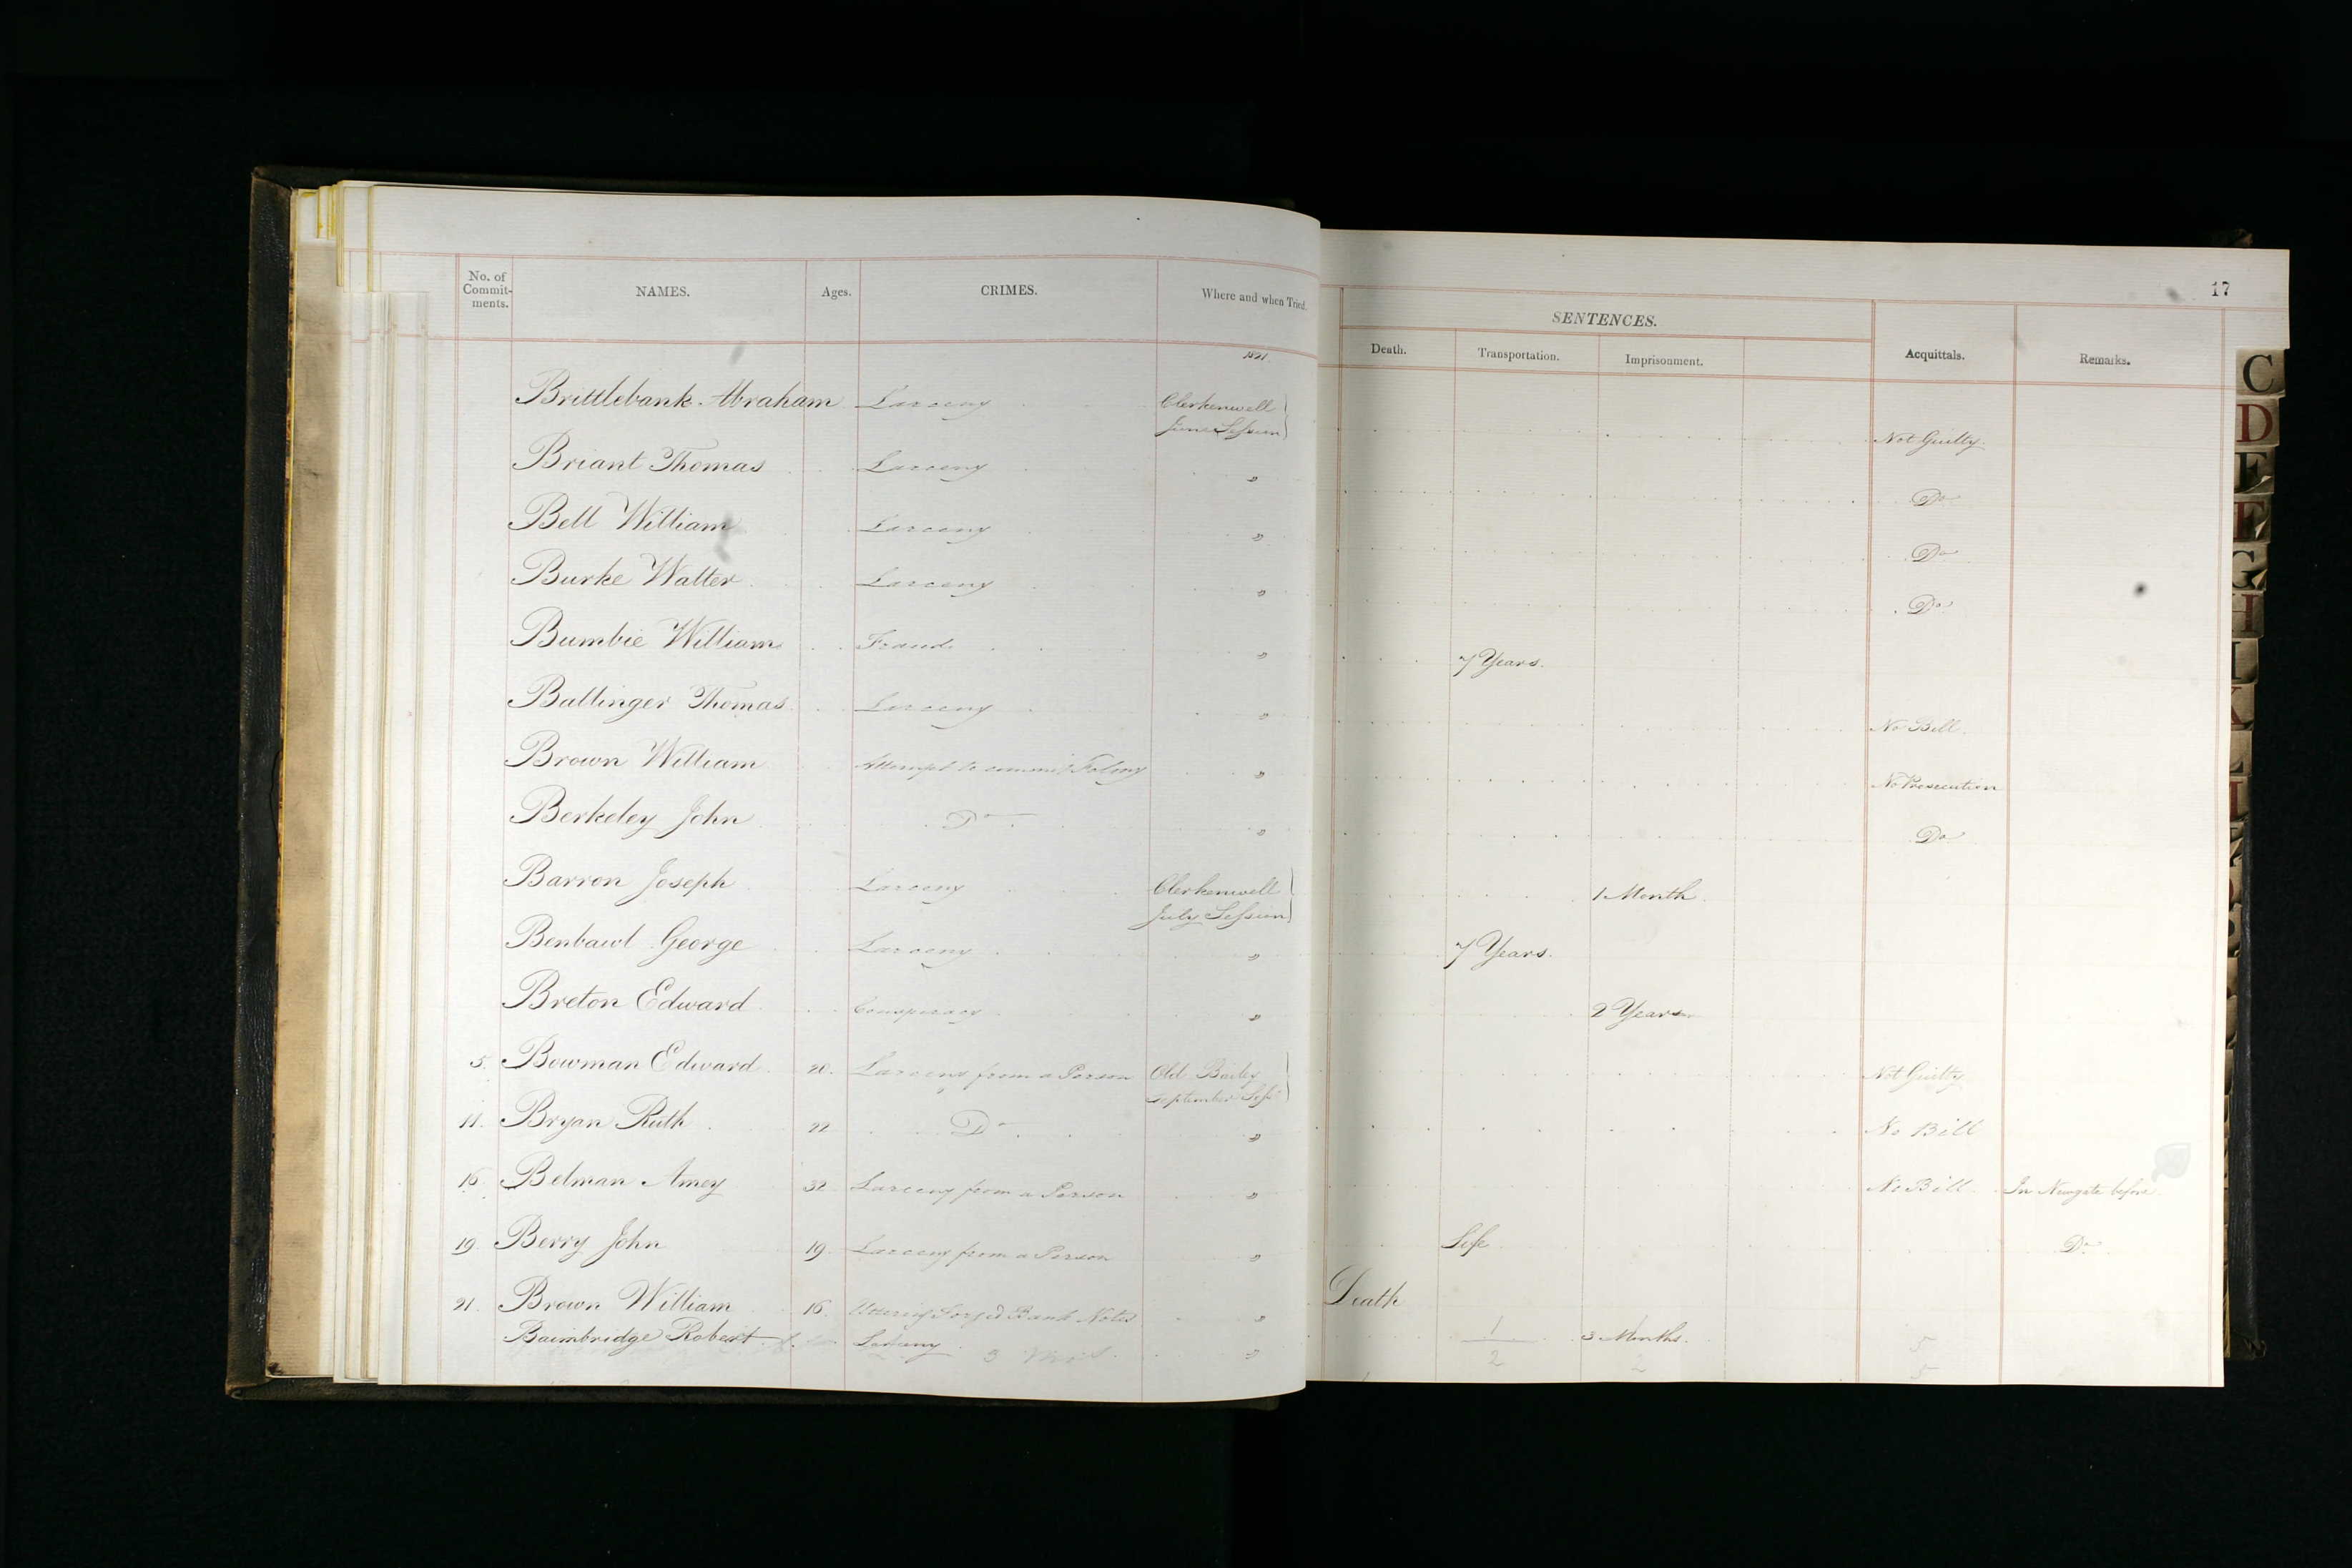 17
No. of Commit-ments. NAMES. Ages. CRIMES. Where and when Tried. SENTENCES. Acquittals. Remarks.
Death. Transportation. Imprisonment.
1821.
Brittlebank Abraham Larceny Clerkenwell June Session Not Guilty
Briant Thomas Larceny " Do
Bell William Larceny " Do
Burke Walter Larceny " Do
Bumbie William Fraud " 7 Years.
Ballinger Thomas Larceny " No Bill.
Brown William Attempt to commit Felony " No Prosecution
Berkeley John Do " Do
Barron Joseph Larceny Clerkenwell July Session 1 Month
Benbawl George Larceny " 7 Years.
Breton Edward Conspiracy " 2 Years
5. Bowman Edward 20. Larceny from a Person Old Bailey September Sess Not Guilty
11. Bryan Ruth 22 Do " No Bill
16. Belman Amey 32 Larceny from a Person " No Bill In Newgate before
19. Berry John 19. Larceny from a Person " Life Do
21. Brown William 16. Uttering Forged Bank Notes " Death
Baimbridge Robert Larceny " 3 Months.
1
2 2 5
5
C
D
E
F
G
I
K
L